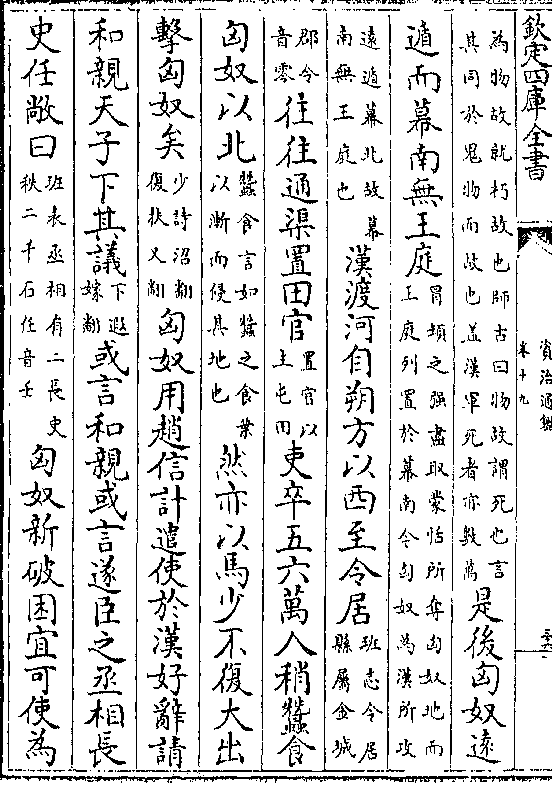 欽定四庫全書
資治通鑑
卷十九
為物故就朽故也師古曰物故謂死也言其同於鬼物而故也蓋漢軍死者亦數萬是後匈奴遠
遁而幕南無王庭冒頓之强盡取蒙恬所奪匈奴地而王庭列置於幕南今匈奴為漢所攻
遠遁幕北故幕南無王庭也漢渡河自朔方以西至令居班志令居縣屬金城
郡令音零往往通渠置田官置官以主屯田吏卒五六萬人稍蠶食
匈奴以北蠶食言如蠶之食葉以漸而侵其地也然亦以馬少不復大出
擊匈奴矣少詩沼翻復扶又翻匈奴用趙信計遣使於漢好辭請
和親天子下其議下遐嫁翻或言和親或言遂臣之丞相長
史任敞曰班表丞相有二長史秩二千石任音壬匈奴新破困宜可使為